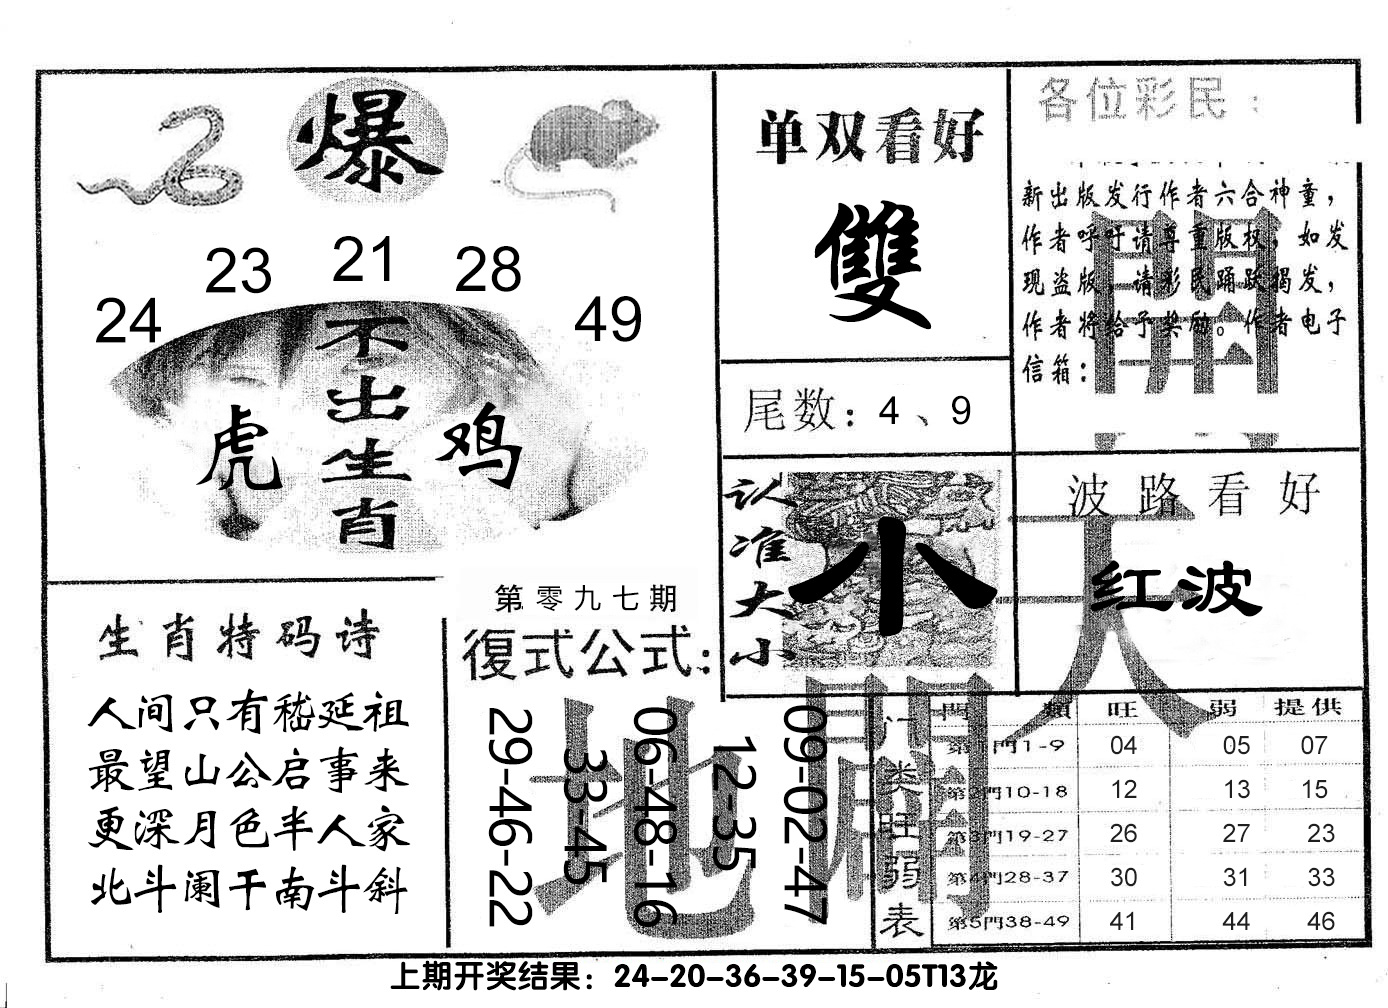 爆
23 21 28
24 49
不出生肖
虎 鸡
单双看好
雙
尾数：4、9
各位彩民：
新出版发行作者六合神童，
作者呼吁请尊重版权，如发
现盗版，请彩民踊跃揭发，
作者将给予奖励。作者电子
信箱：
認准大小
小
波路看好
红波
天
地
開
開
生肖特码诗
人间只有嵇延祖
最望山公启事来
更深月色半人家
北斗阑干南斗斜
第零九七期
復式公式：
29-46-22
33-45
06-48-16
12-35
09-02-47
门类旺弱表
門類 旺 弱 提供
第1門1-9 04 05 07
第2門10-18 12 13 15
第3門19-27 26 27 23
第4門28-37 30 31 33
第5門38-49 41 44 46
上期开奖结果：24-20-36-39-15-05T13龙